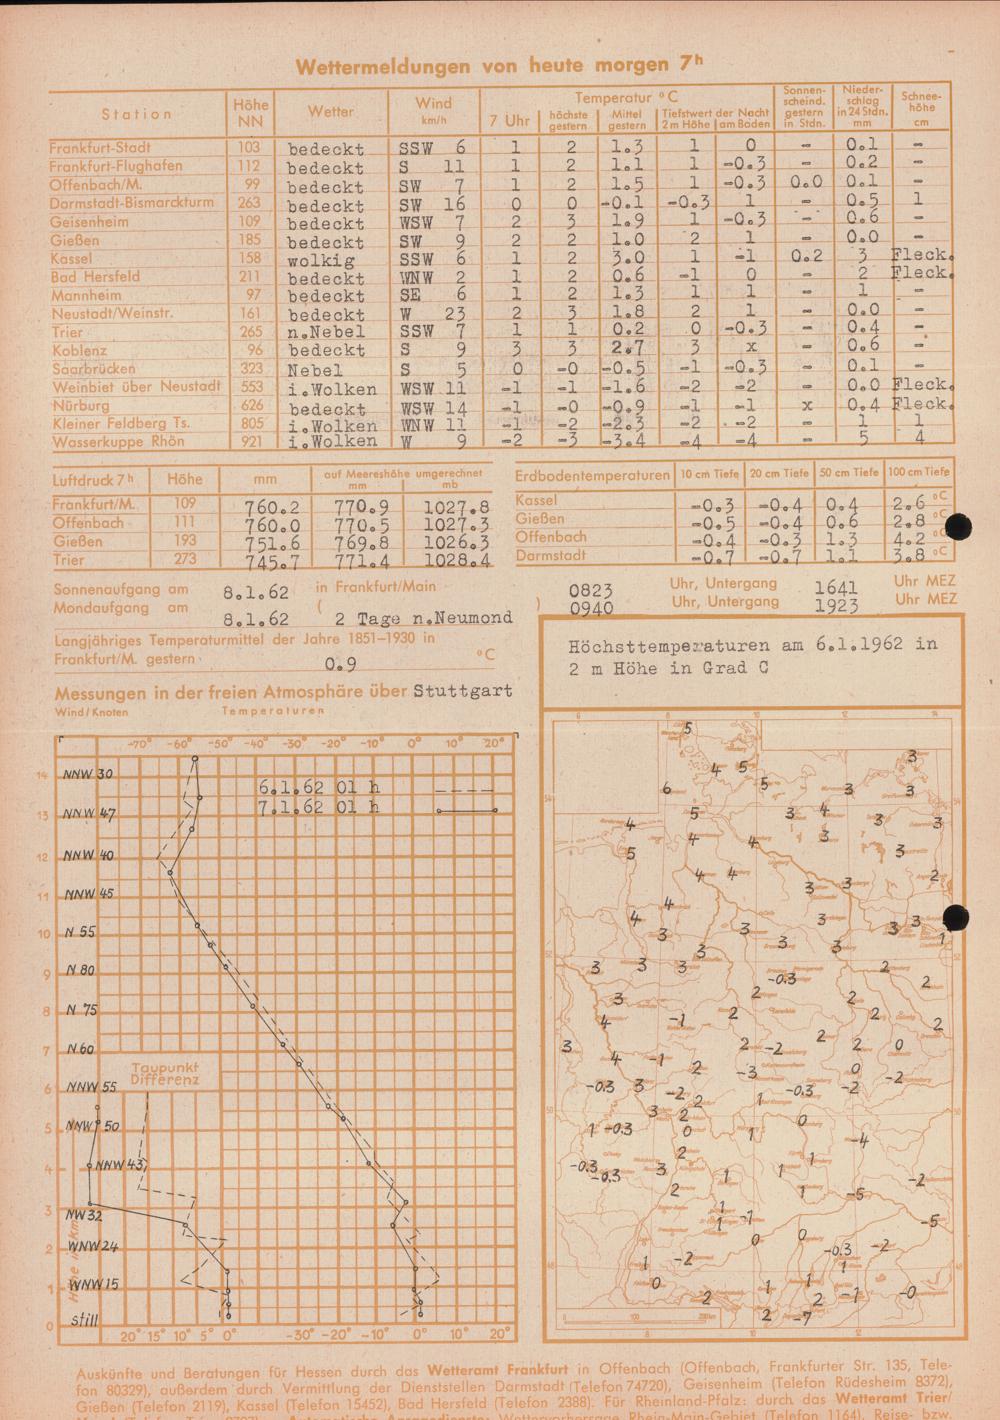 Wettermeldungen von heute morgen 7h
Station Höhe NN Wetter Wind km/h Temperatur °C Sonnen-scheind. gestern in Stdn. Nieder-schlag in 24 Stdn. mm Schnee-höhe cm
7 Uhr höchste gestern Mittel gestern Tiefstwert der Nacht 2 m Höhe am Boden
Frankfurt-Stadt 103 bedeckt SSW 6 1 2 1.3 1 0 - 0.1 -
Frankfurt-Flughafen 112 bedeckt S 11 1 2 1.1 1 -0.3 - 0.2 -
Offenbach/M. 99 bedeckt SW 7 1 2 1.5 1 -0.3 0.0 0.1 -
Darmstadt-Bismarckturm 263 bedeckt SW 16 0 0 -0.1 -0.3 1 - 0.5 1
Geisenheim 109 bedeckt WSW 7 2 3 1.9 1 -0.3 - 0.6 -
Gießen 185 bedeckt SW 9 2 2 1.0 2 1 - 0.0 -
Kassel 158 wolkig SSW 6 1 2 3.0 1 -1 0.2 3 Fleck.
Bad Hersfeld 211 bedeckt WNW 2 1 2 0.6 -1 0 - 2 Fleck.
Mannheim 97 bedeckt SE 6 1 2 1.3 1 1 - 1 -
Neustadt/Weinstr. 161 bedeckt W 23 2 3 1.8 2 1 - 0.0 -
Trier 265 n.Nebel SSW 7 1 1 0.2 0 -0.3 - 0.4 -
Koblenz 96 bedeckt S 9 3 3 2.7 3 x - 0.6 -
Saarbrücken 323 Nebel S 5 0 -0 -0.5 -1 -0.3 - 0.1 -
Weinbiet über Neustadt 553 i.Wolken WSW 11 -1 -1 -1.6 -2 -2 - 0.0 Fleck.
Nürburg 626 bedeckt WSW 14 -1 -0 -0.9 -1 -1 x 0.4 Fleck.
Kleiner Feldberg Ts. 805 i.Wolken WNW 11 -1 -2 -2.3 -2 -2 - 1 1
Wasserkuppe Rhön 921 i.Wolken W 9 -2 -3 -3.4 -4 -4 - 5 4
Luftdruck 7h Höhe mm auf Meereshöhe umgerechnet mm mb
Frankfurt/M. 109 760.2 770.9 1027.8
Offenbach 111 760.0 770.5 1027.3
Gießen 193 751.6 769.8 1026.3
Trier 273 745.7 771.4 1028.4
Erdbodentemperaturen 10 cm Tiefe 20 cm Tiefe 50 cm Tiefe 100 cm Tiefe
Kassel -0.3 -0.4 0.4 2.6 °C
Gießen -0.5 -0.4 0.6 2.8 °C
Offenbach -0.4 -0.3 1.3 4.2 °C
Darmstadt -0.7 -0.7 1.1 3.8 °C
Sonnenaufgang am 8.1.62 in Frankfurt/Main 0823 Uhr, Untergang 1641 Uhr MEZ
Mondaufgang am 8.1.62 ( 2 Tage n.Neumond ) 0940 Uhr, Untergang 1923 Uhr MEZ
Langjähriges Temperaturmittel der Jahre 1851–1930 in
Frankfurt/M. gestern 0.9 °C
Messungen in der freien Atmosphäre über Stuttgart
Wind/Knoten Temperaturen
-70° -60° -50° -40° -30° -20° -10° 0° 10° 20°
14 NNW 30
6.1.62 01 h
7.1.62 01 h
13 NNW 47
12 NNW 40
11 NNW 45
10 N 55
9 N 80
8 N 75
7 N 60
Taupunkt
Differenz
6 NNW 55
5 NNW 50
4 NNW 43
3 NW 32
2 WNW 24
1 WNW 15
0 still
Höhe in km
20° 15° 10° 5° 0° -30° -20° -10° 0° 10° 20°
Höchsttemperaturen am 6.1.1962 in
2 m Höhe in Grad C
6 8 10 12 14
5
3
4 5
6 5 3 3
5 3 4
4 3 3
4 4 3
5 3
4 4 3 3 2
4
4 3 3 3
3 3 3 3 1
3
3 3 3 2
-0.3 2
3 2 2
4 -1 2 2 2
3 2 -2 2 2 0
4 -1 2 -3 0 -2
-0.3 3 -2 -0.3 -2
3 2 2 1
1 -0.3 0 1 0 -4
2 1
-0.3 -0.3 3 1 1 -2
2 1 -5
1 1 -1 -5
0 0
1 -2 -0.3 -2
0 1 1 1
2 2 -1 -0
2 -7
Auskünfte und Beratungen für Hessen durch das Wetteramt Frankfurt in Offenbach (Offenbach, Frankfurter Str. 135, Tele-
fon 80329), außerdem durch Vermittlung der Dienststellen Darmstadt (Telefon 74720), Geisenheim (Telefon Rüdesheim 8372),
Gießen (Telefon 2119), Kassel (Telefon 15452), Bad Hersfeld (Telefon 2388). Für Rheinland-Pfalz: durch das Wetteramt Trier/
Wettervorhersage Rhein-Main-Gebiet (Telefon 1164), Reise- bzw.